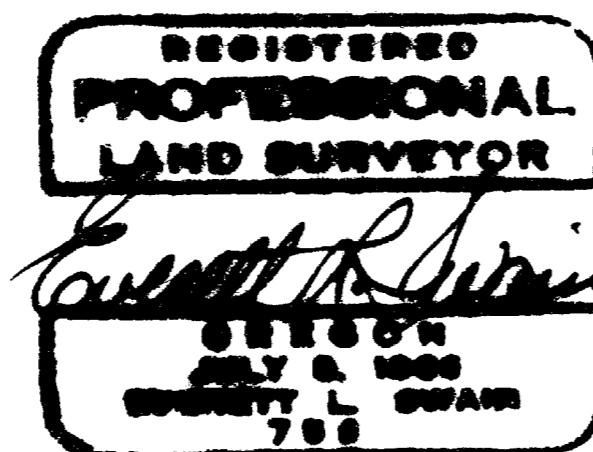 REGISTERED
PROFESSIONAL
LAND SURVEYOR
Everett L. Swain
OREGON
JULY
EVERETT L. SWAIN